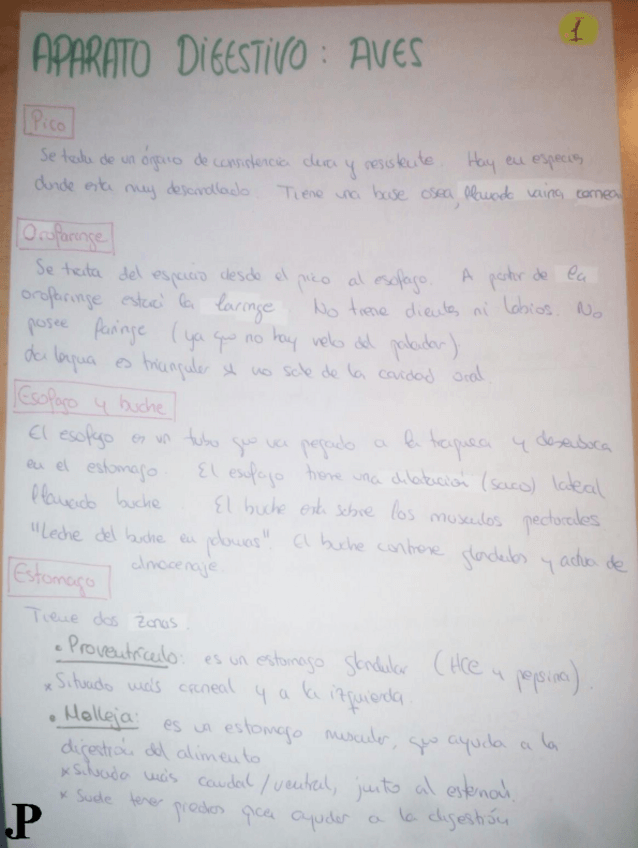 1
APARATO DIGESTIVO: AVES
Pico
Se trata de un órgano de consistencia dura y resistente. Hay en especies
donde esta muy desarrollado. Tiene una base osea, llamado vaina cornea
Orofaringe
Se trata del espacio desde el pico al esofago. A partir de la
orofaringe estará la laringe No tiene dientes ni labios. No
posee faringe (ya que no hay velo del paladar)
La lengua es triangular no sale de la cavidad oral.
Esofago y buche
El esofago es un tubo que va pegado a la traquea y desemboca
en el estomago. El esofago tiene una dilatación (saco) lateral
llamado buche El buche esta sobre los musculos pectorales
"Leche del buche en palomas". El buche contiene glandulas y actua de
almacenaje.
Estomago
Tiene dos zonas.
• Proventriculo: es un estomago glandular (HCl y pepsina).
* Situado más craneal y a la izquierda.
• Molleja: es un estomago muscular, que ayuda a la
digestión del alimento
* Situado más caudal/ventral, junto al esternon.
* Suele tener piedras para ayudar a la digestión
JP